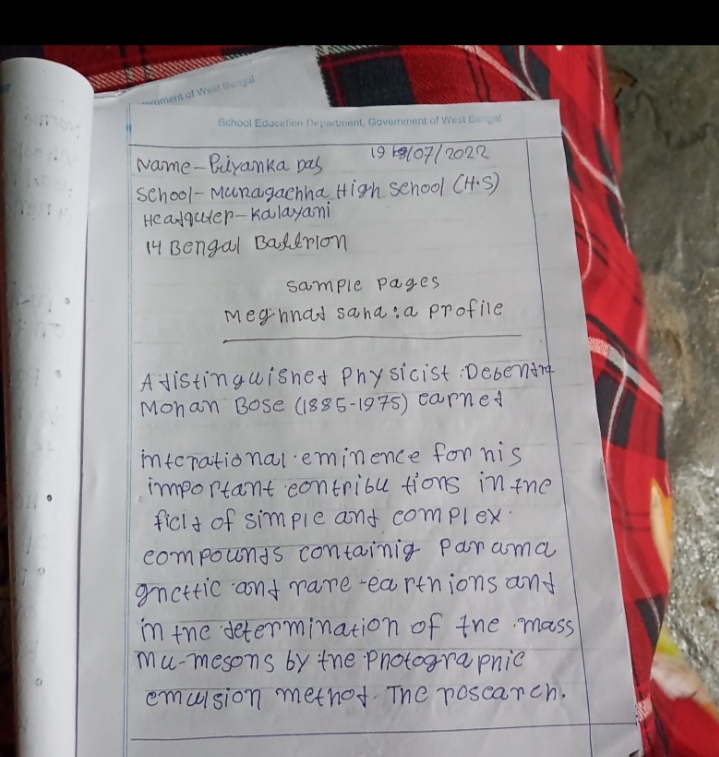 ernment of West Bengal
School Education Department, Government of West Bengal
Name-Priyanka Das 19/07/2022
School-Munagachha High School (H.S)
Headquter-Kalayani
14 Bengal Battrlon
Sample pages
Meghnad saha:a profile
A distinguished Physicist Debendra
Mohan Bose (1885-1975) earned
interational eminence for his
important contribu tions in the
ficld of simple and complex
compounds containig Parama
gnettic and rare-earth ions and
in the determination of the mass
Mu-mesons by the Photographic
emulsion method. The roscarch.